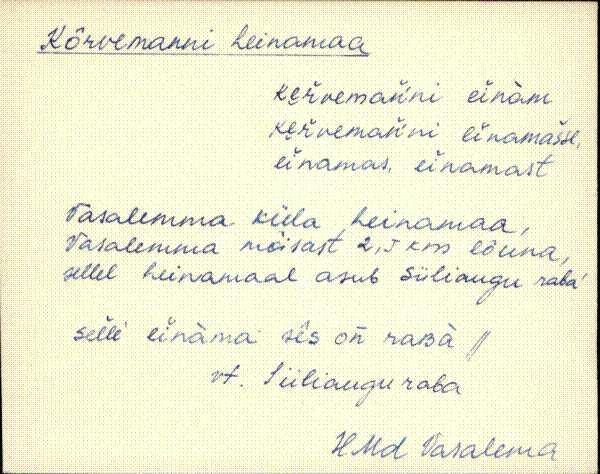 Kõrvemanni heinamaa
kęřvemań̀ni eìnàm
kęřvemań̀ni eìnamàsse,
eìnamas, eìnamast
Vasalemma küla, heinamaa,
Vasalemma mõisast 2,5 km lõuna,
sellel heinamaal asub Süliaugu raba
selle̍ eìnàma sês on̄ raʙà //
vt. Süliaugu raba
HMd Vasalema